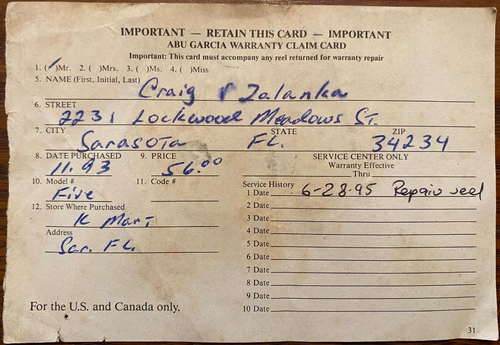 IMPORTANT — RETAIN THIS CARD — IMPORTANT
ABU GARCIA WARRANTY CLAIM CARD
Important: This card must accompany any reel returned for warranty repair
1. (✓)Mr. 2. ( )Mrs. 3. ( )Ms. 4. ( )Miss
5. NAME (First, Initial, Last) Craig V Zalanka
6. STREET
2231 Lockwood Meadows ST.
7. CITY STATE ZIP
Sarasota FL. 34234
8. DATE PURCHASED 9. PRICE SERVICE CENTER ONLY
11.93 56.00 Warranty Effective
Thru
10. Model # 11. Code # Service History
Five 1 Date 6-28-95 Repair reel
12. Store Where Purchased 2 Date
K Mart 3 Date
Address 4 Date
Sar. FL. 5 Date
6 Date
7 Date
8 Date
9 Date
For the U.S. and Canada only. 10 Date
31